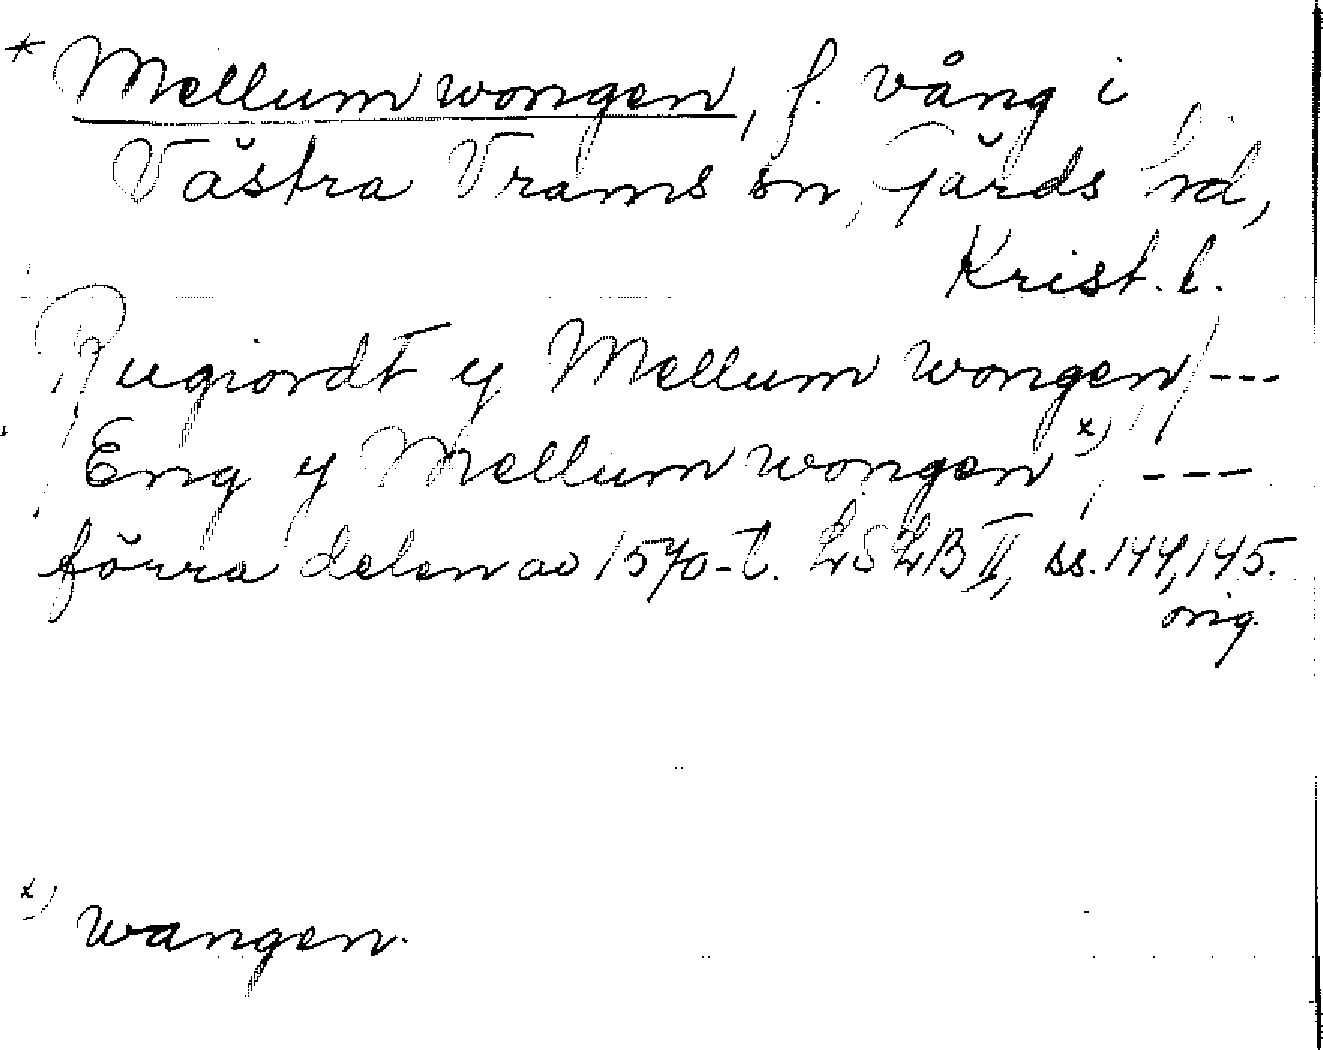 * Mellum wongen, f. vång i
Västra Vrams sn, Gärds hd,
Krist. l.
Rugiordt y Mellum wongen, ---
Eng y Mellum wongen x), ---
förra delen av 1570-t. LSLB II, ss. 144, 145.
orig.
x) wangen.